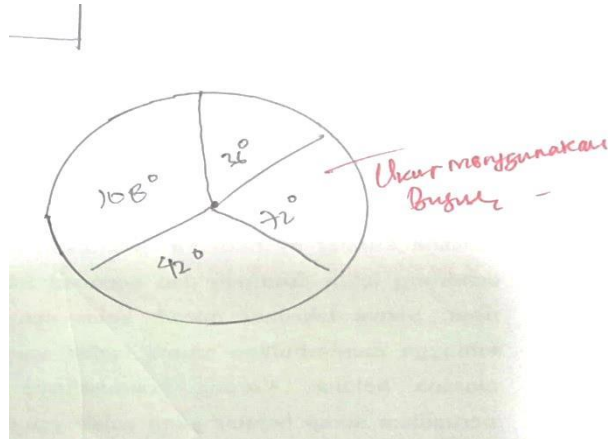 36°
108°
72°
42°
Ukur menggunakan
Busur